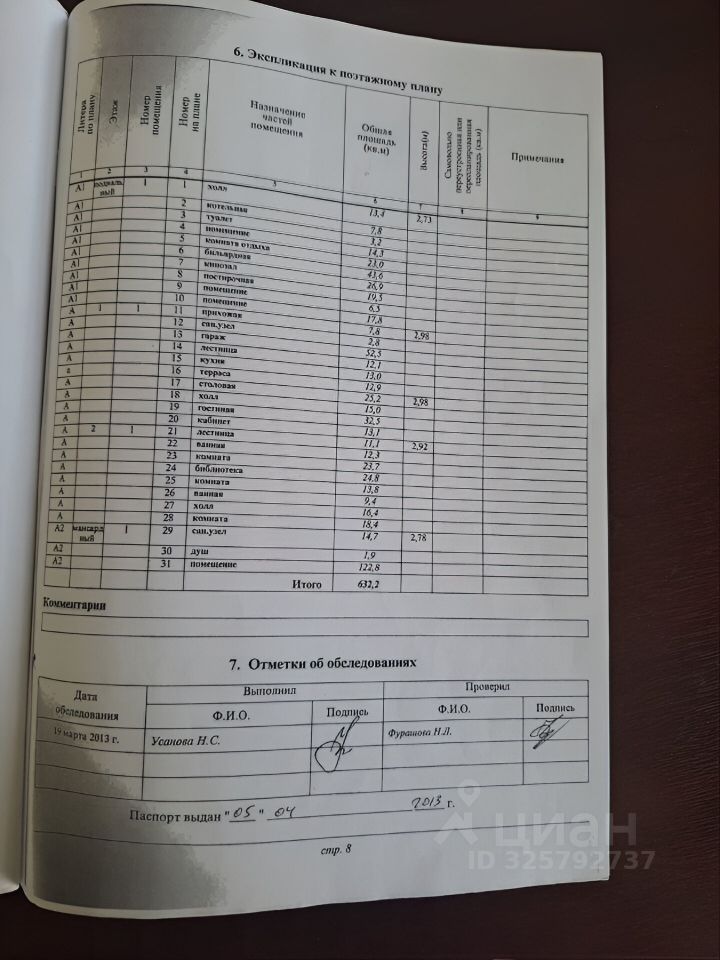 6. Экспликация к поэтажному плану
Литера по плану Этаж Номер помещения Номер на плане Назначение частей помещения Общая площадь (кв.м) Высота(м) Самовольно переустроенная или перепланированная площадь (кв.м) Примечания
1 2 3 4 5 6 7 8 9
А1 подвальный 1 1 холл 13,4 2,73
А1 2 котельная 7,8
А1 3 туалет 3,2
А1 4 помещение 14,3
А1 5 комната отдыха 23,0
А1 6 бильярдная 43,6
А1 7 кинозал 26,9
А1 8 постирочная 19,5
А1 9 помещение 6,5
А1 10 помещение 17,8
А 1 1 11 прихожая 7,8 2,98
А 12 сан.узел 2,8
А 13 гараж 52,5
А 14 лестница 12,1
А 15 кухня 13,0
а 16 терраса 12,9
А 17 столовая 25,2 2,98
А 18 холл 15,0
А 19 гостиная 32,5
А 20 кабинет 13,1
А 2 1 21 лестница 11,1 2,92
А 22 ванная 12,3
А 23 комната 23,7
А 24 библиотека 24,8
А 25 комната 13,8
А 26 ванная 9,4
А 27 холл 16,4
А 28 комната 18,4
А2 мансардный 1 29 сан.узел 14,7 2,78
А2 30 душ 1,9
А2 31 помещение 122,8
Итого 632,2
Комментарии
7. Отметки об обследованиях
Дата обследования Выполнил Проверил
Ф.И.О. Подпись Ф.И.О. Подпись
19 марта 2013 г. Усанова Н.С. Фурашова Н.Л.
Паспорт выдан "05" 04 2013 г.
стр. 8
циан
ID 325792737